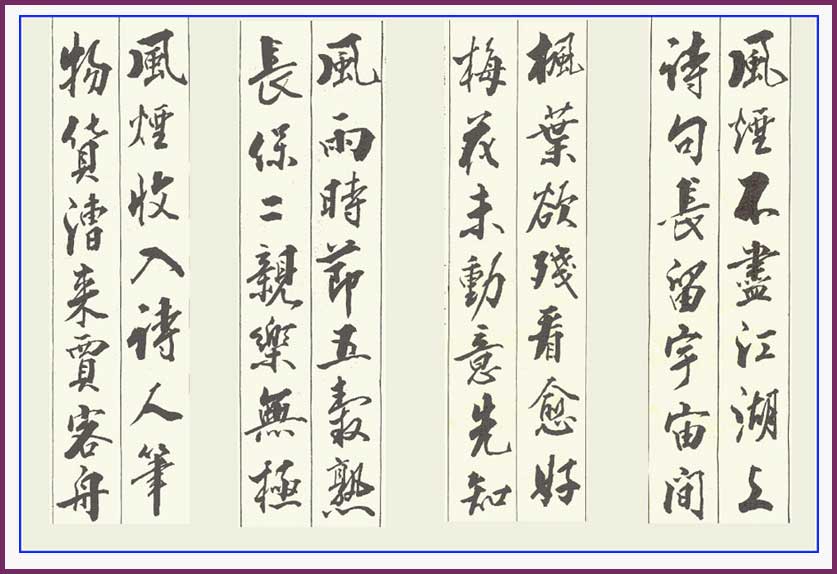 風煙不盡江湖上
詩句長留宇宙間
楓葉欲殘看愈好
梅花未動意先知
風雨時節五穀熟
長保二親樂無極
風煙收入詩人筆
物貨漕来賈客舟